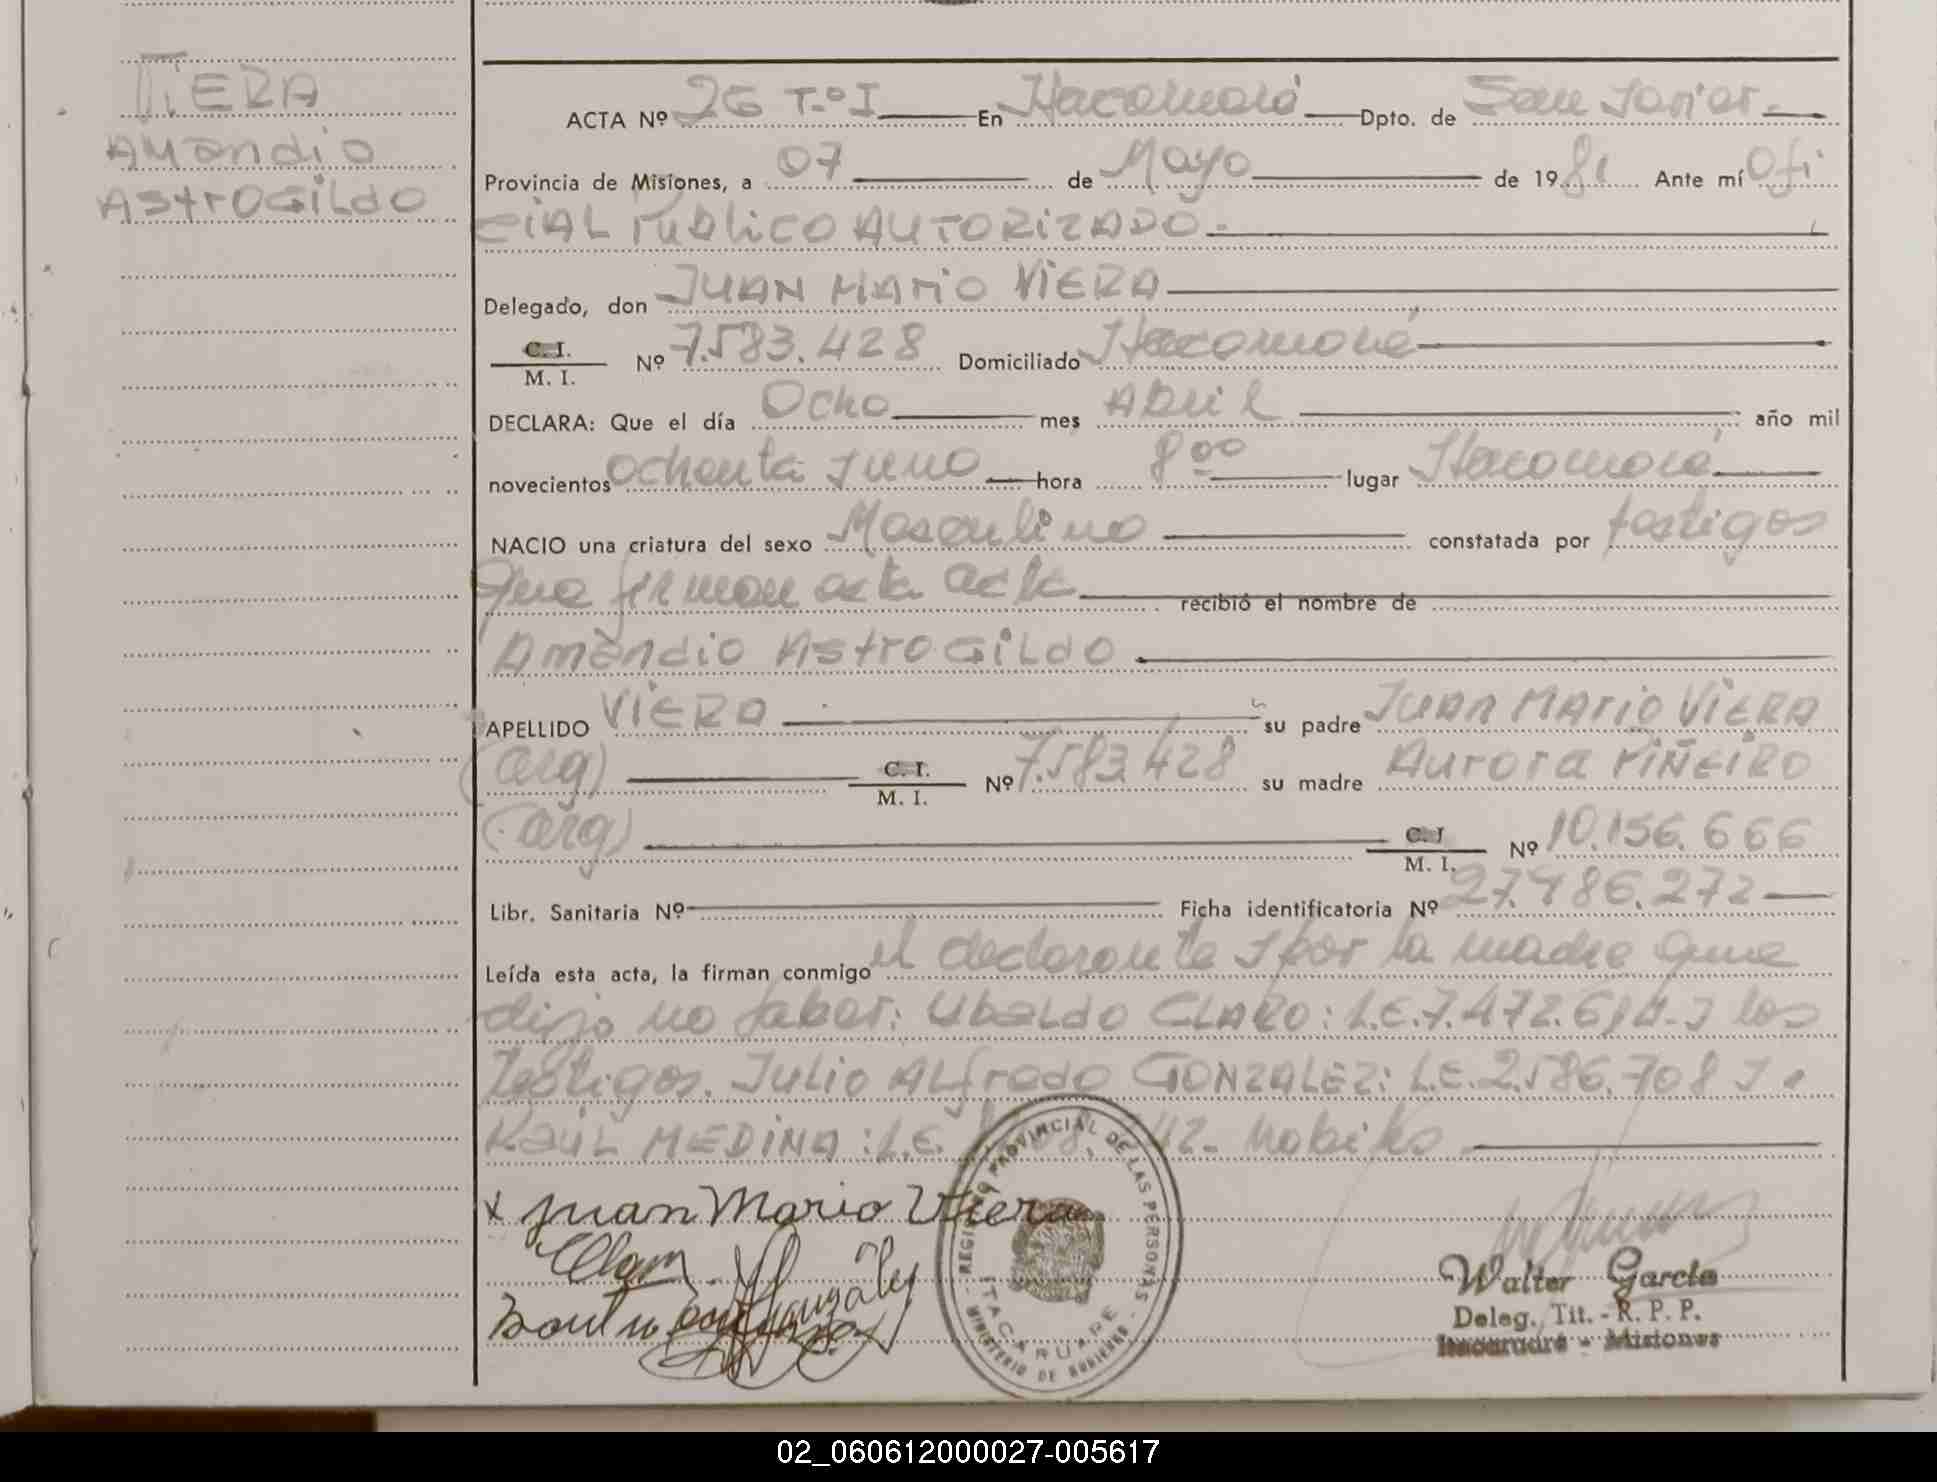 VIERA
Amandio
AstroGildo
ACTA Nº 26 T.º I En Itacaruaré Dpto. de San Javier.
Provincia de Misiones, a 07 de Mayo de 1981 Ante mí Ofi
CIAL Publico AUTORIZADO.
Delegado, don JUAN MArio ViERA
C. I. / M. I. Nº 7.583.428 Domiciliado Itacaruaré
DECLARA: Que el día Ocho mes Abril año mil
novecientos ochenta y uno hora 8 00 lugar Itacaruaré
NACIO una criatura del sexo Masculino constatada por testigos
que firman esta acta recibió el nombre de
Amandio AstroGildo
APELLIDO VIERA su padre JUAN MArio ViERA
(arg) C. I. / M. I. Nº 7.583.428 su madre Aurora PIÑEIRO
(arg) C. I. / M. I. Nº 10.156.666
Libr. Sanitaria Nº Ficha identificatoria Nº 27.486.272
Leída esta acta, la firman conmigo el declarante y por la madre que
dijo no saber: Ubaldo CLARO: L.E. y los
testigos. Julio Alfredo GONZALEZ: L.E. 2.586.708 y
RAÚL MEDINA: L.E. 42.
x Juan Mario Viera
REGISTRO PROVINCIAL DE LAS PERSONAS
MINISTERIO DE GOBIERNO
ITACARUARE
Walter Garcia
Deleg. Tit. - R. P. P.
Itacaruaré - Misiones
02_060612000027-005617